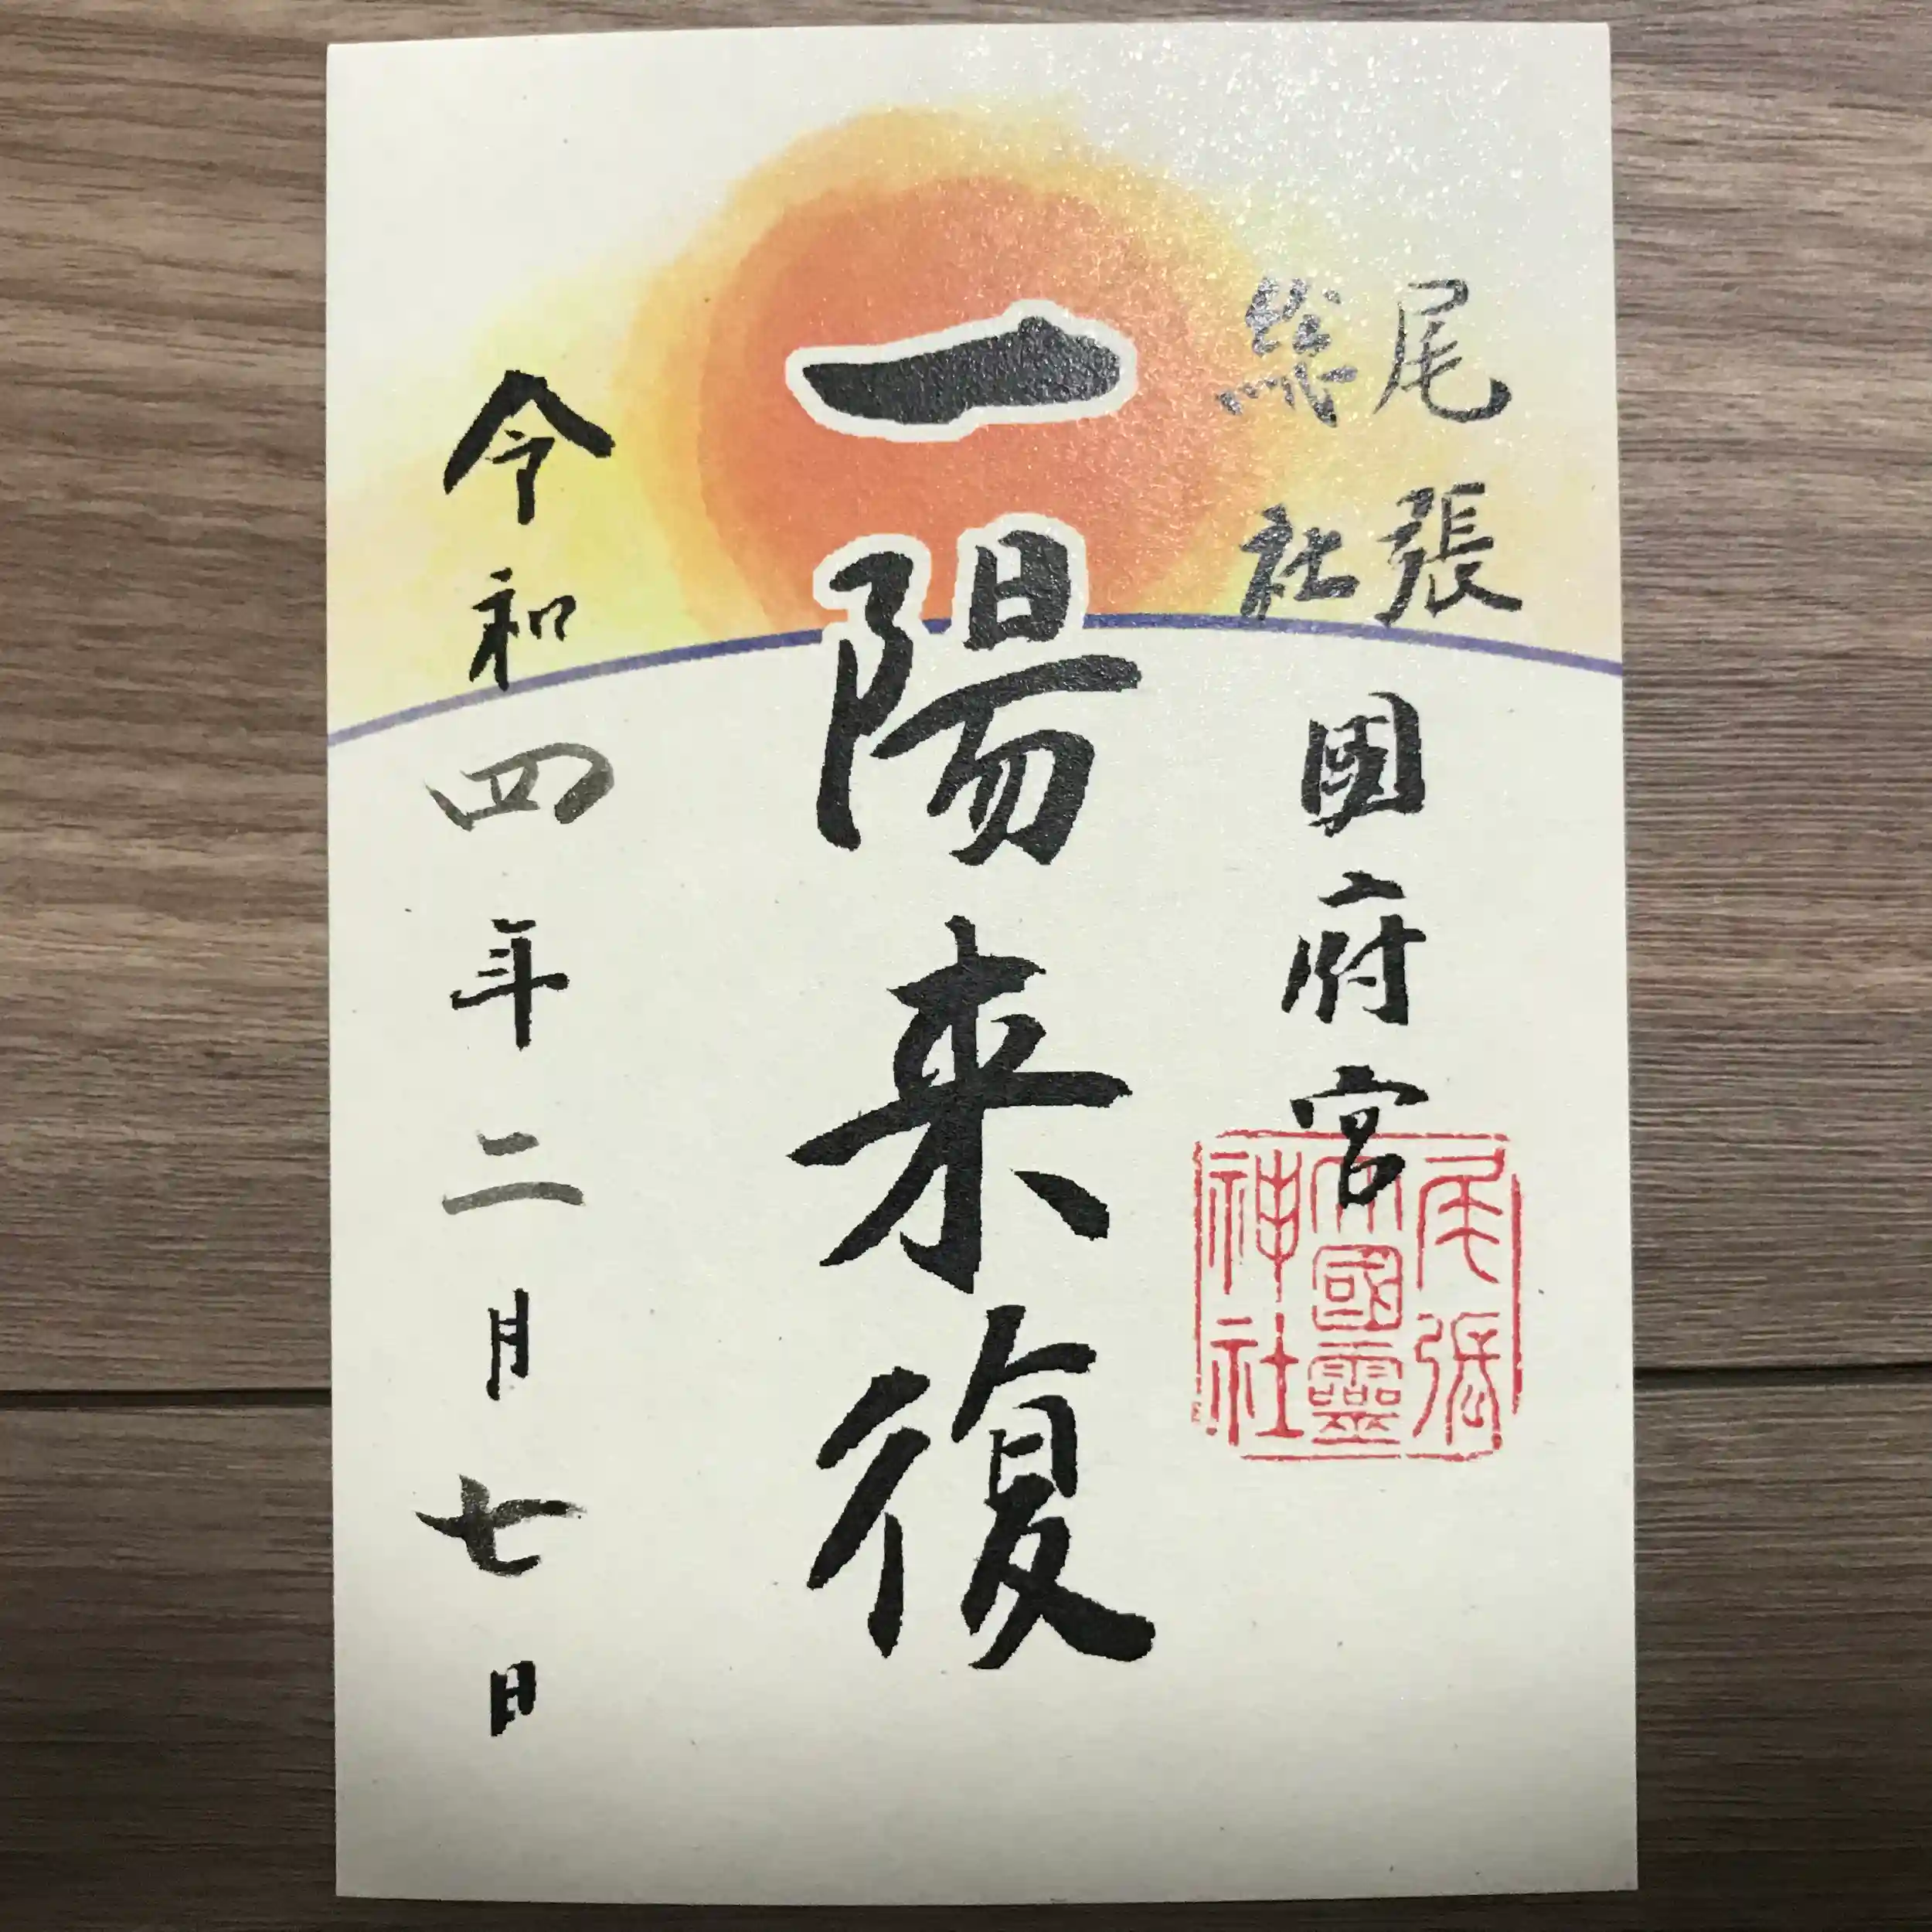 尾張
総社
国府宮
尾張
大國靈
神社
一陽来復
令和四年二月七日